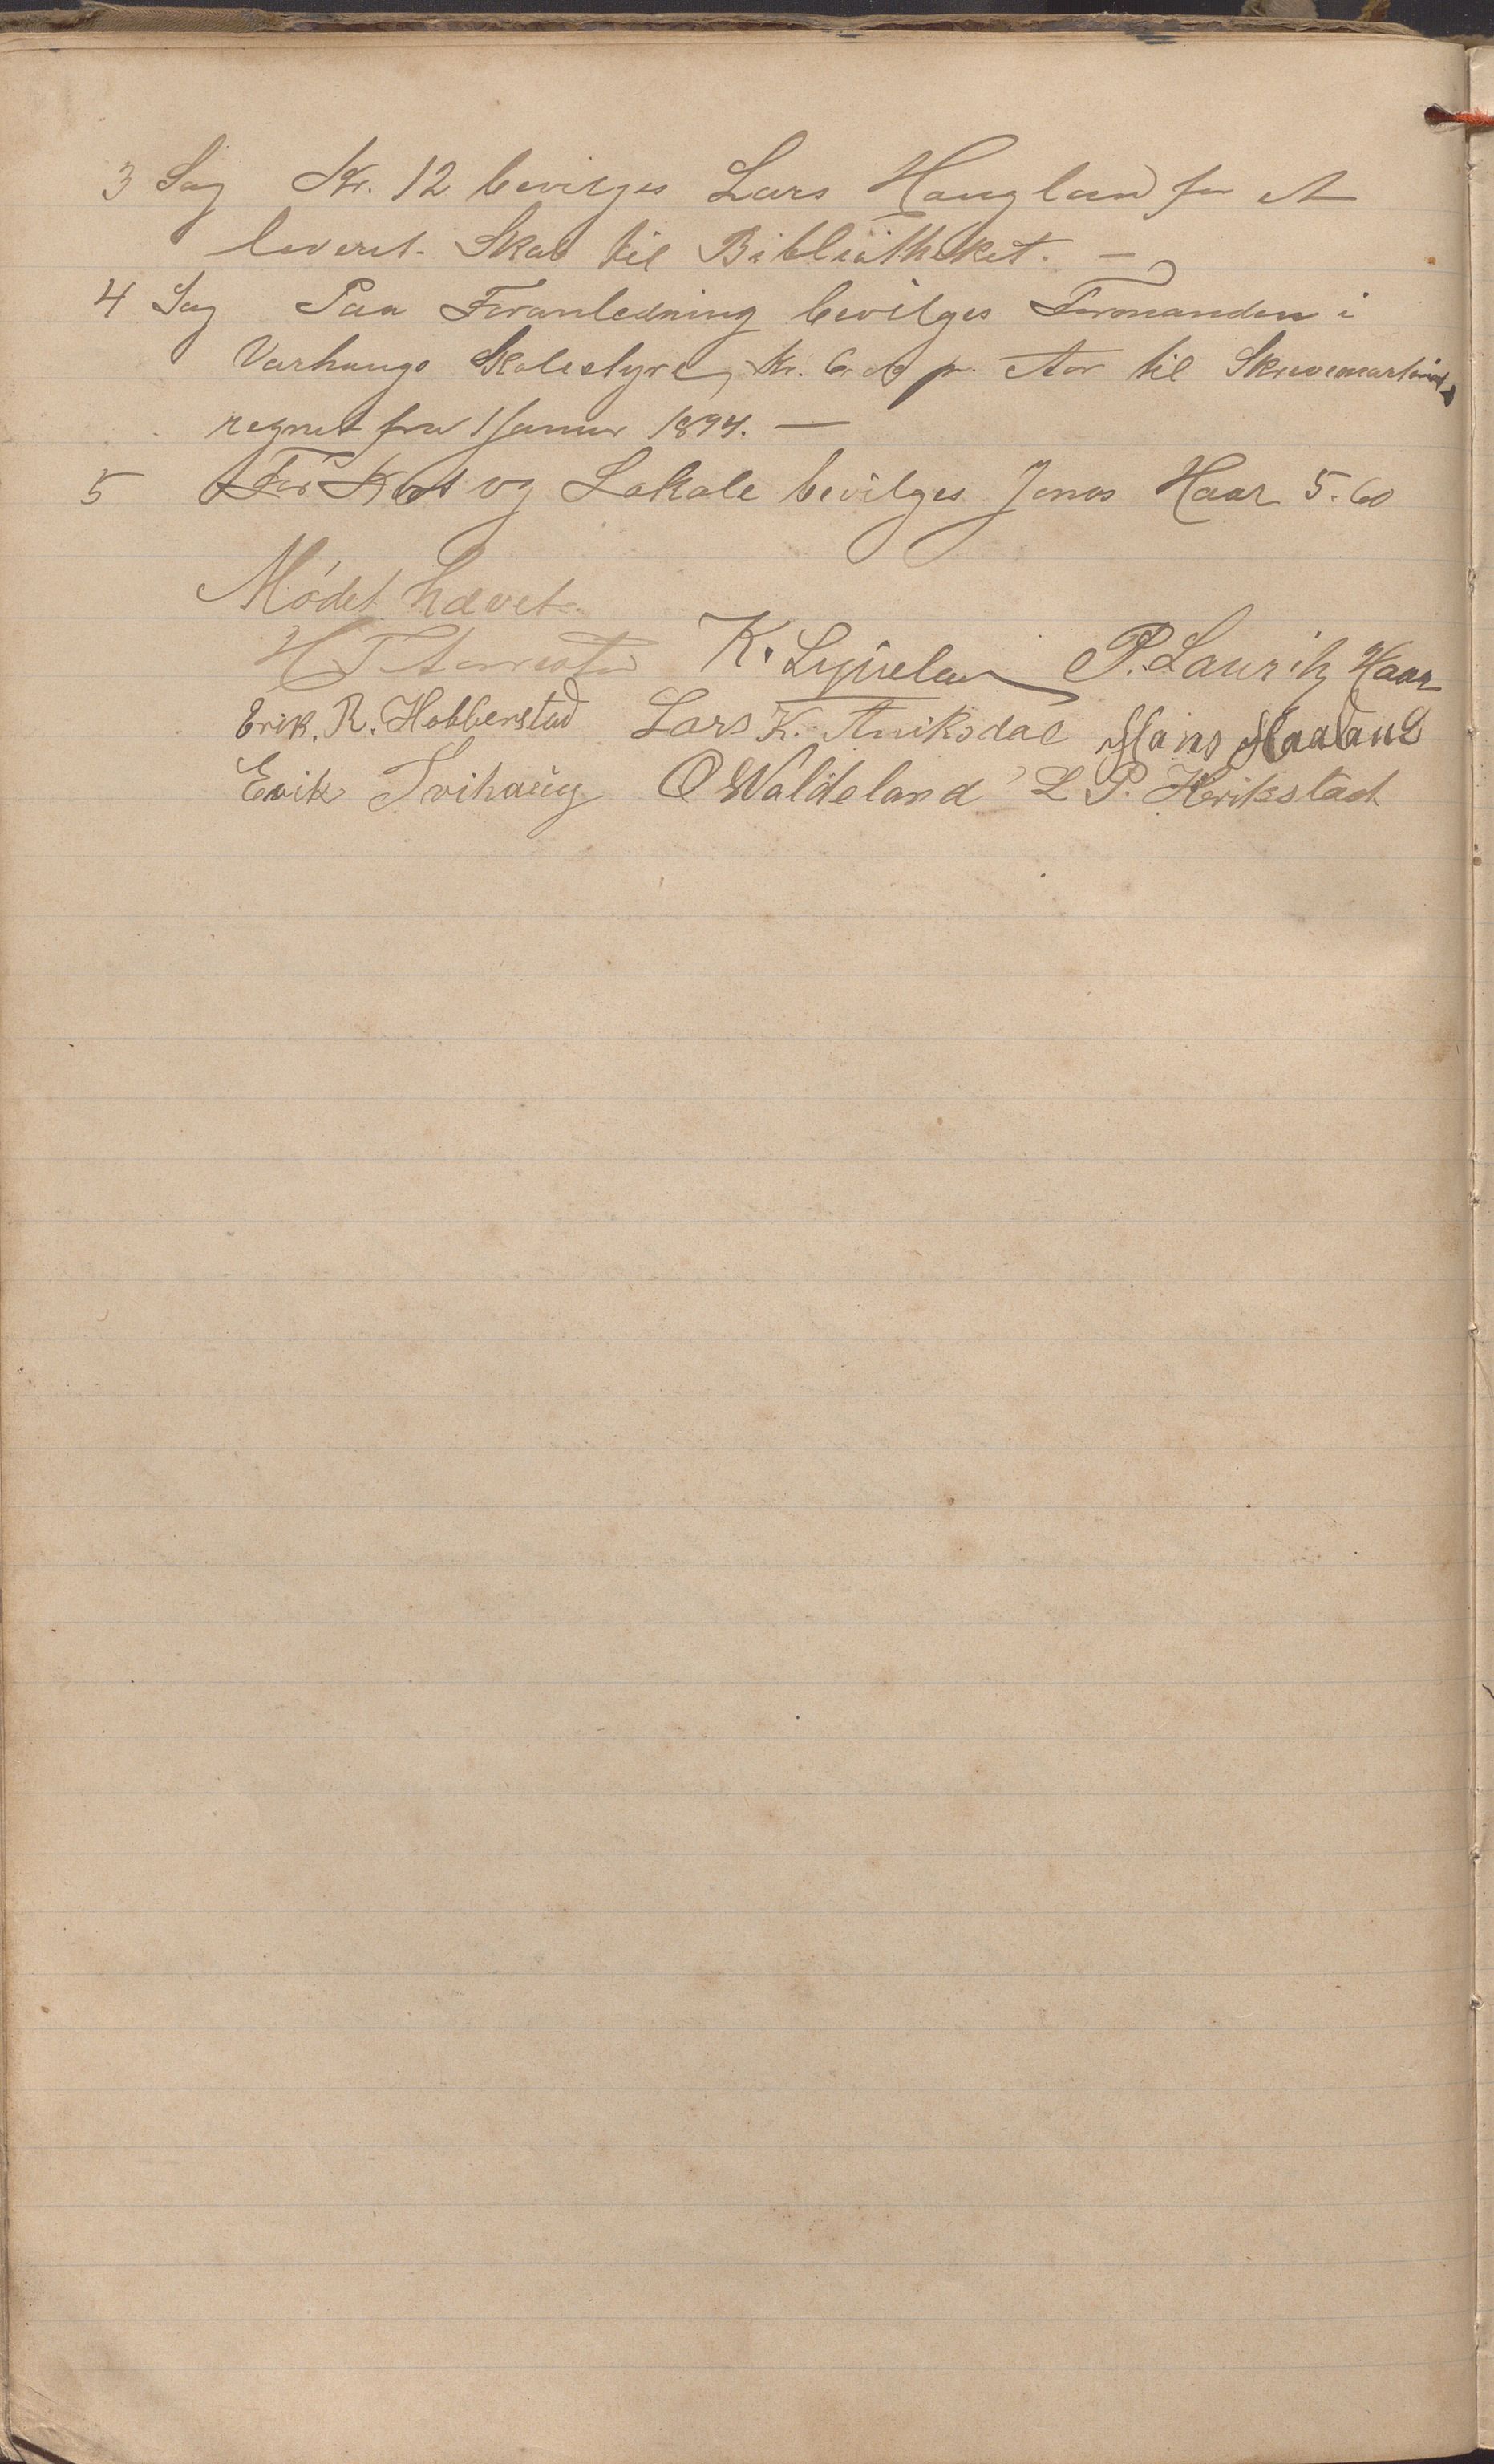 3 Sag Kr. 12 bevilges Lars Haugland for et
leveret Skab til Bibliotheket. —
4 Sag Paa Foranledning bevilges Formanden i
Varhaugs Skolestyre, Kr. 6.00 pr. Aar til
regnet fra 1 Januar 1894. —
5 For Kost og Lokale bevilges Jonas Haar 5.60
Mødet hævet.
K. P. Lauritz Haar
Erik. R. Hobberstad Lars K. Aniksdal Hans Haaland
Erik Tvihaug O Waldeland L P. Herikstad